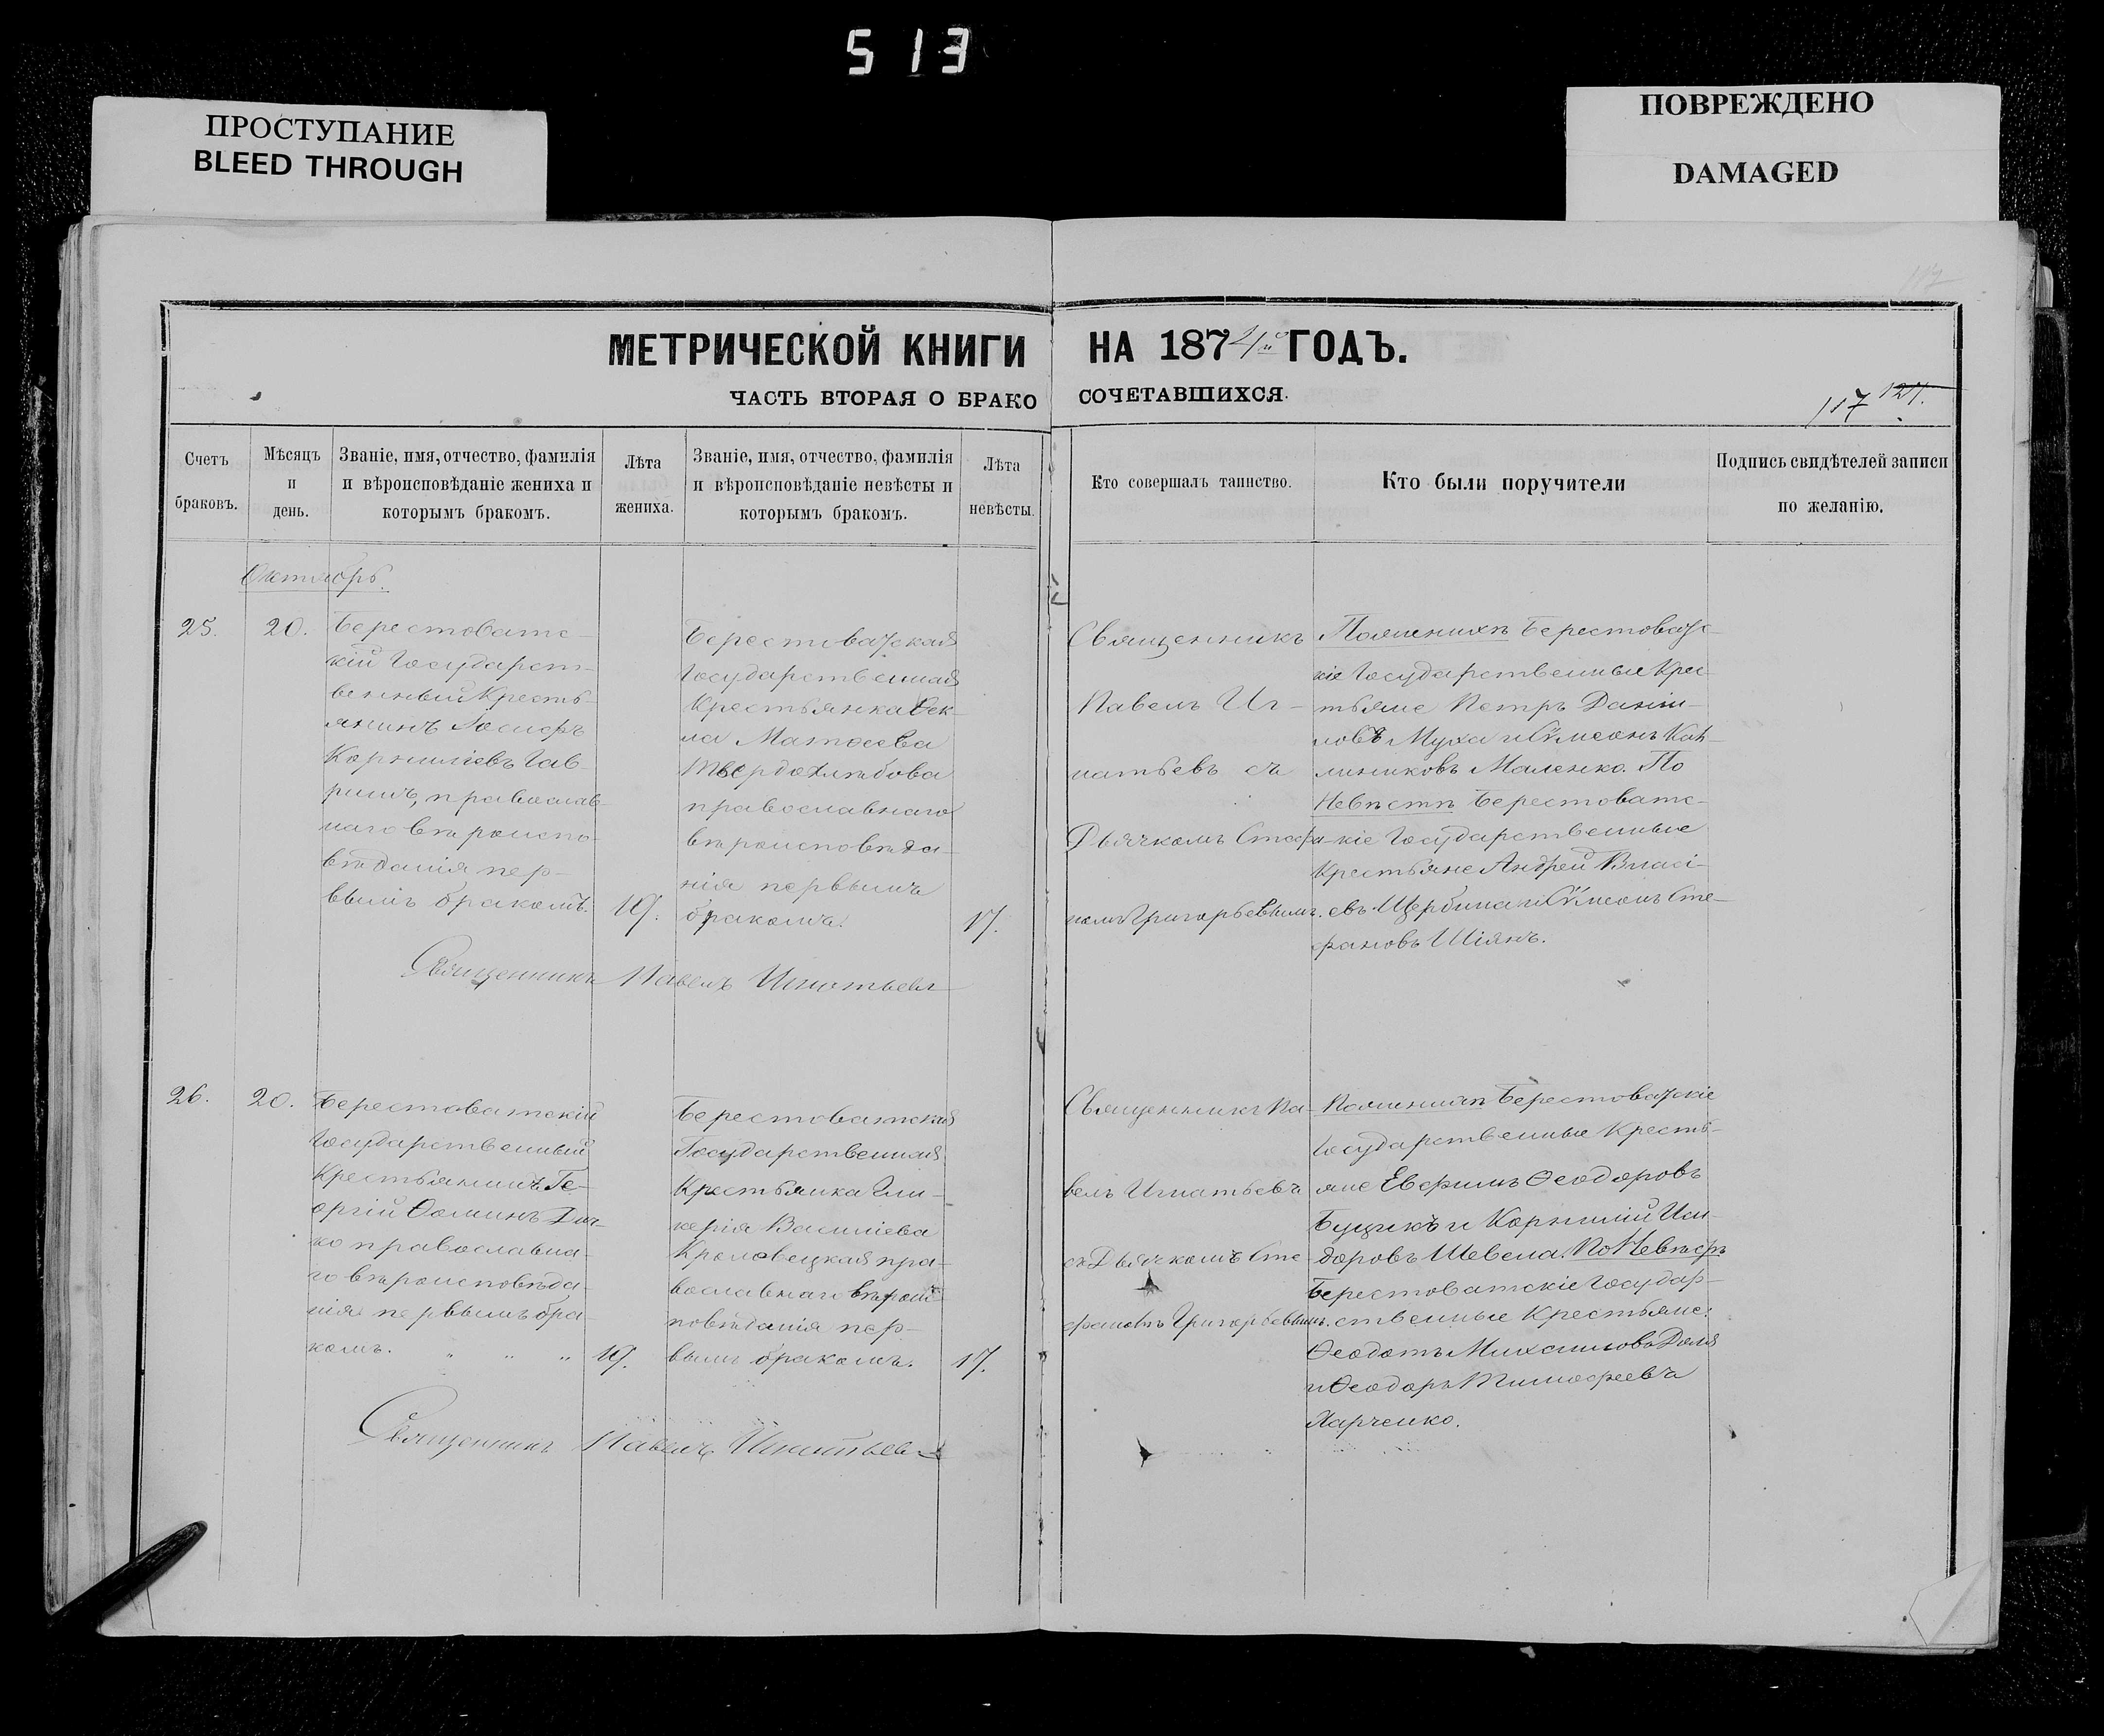 513
ПРОСТУПАНИЕ
BLEED THROUGH
ПОВРЕЖДЕНО
DAMAGED
МЕТРИЧЕСКОЙ КНИГИ НА 1874й ГОДЪ.
ЧАСТЬ ВТОРАЯ О БРАКОСОЧЕТАВШИХСЯ.
117 121.
Счетъ
браковъ.
Мѣсяцъ
и
день.
Званіе, имя, отчество, фамилія
и вѣроисповѣданіе жениха и
которымъ бракомъ.
Лѣта
жениха.
Званіе, имя, отчество, фамилія
и вѣроисповѣданіе невѣсты и
которымъ бракомъ.
Лѣта
невѣсты.
Кто совершалъ таинство.
Кто были поручители
Подпись свидѣтелей записи
по желанію.
Октябрь.
25.
20.
Берестоватс-
кій Государст-
венный Кресть-
янинъ Іосифъ
Корниліевъ Гав-
ришъ, православ-
наго вѣроиспо-
вѣданія пер-
вымъ бракомъ.
19.
Берестоватская
Государственная
Крестьянка Ѳек-
ла Матѳеева
Твердохлѣбова
православнаго
вѣроисповѣда-
нія первымъ
бракомъ.
17.
Священникъ
Павелъ Иг-
натьевъ съ
Дьячкомъ Стефа-
номъ Григорьевымъ.
По женихѣ Берестоватс-
кіе Государственные Крес-
тьяне Петръ Даніи-
ловъ Муха и Сѵмеонъ Кал-
линиковъ Маленко. По
Невѣстѣ Берестоватс-
кіе Государственные
Крестьяне Андрей Власі-
евъ Щербина и Сѵмеонъ Сте-
фановъ Шіянъ.
Священникъ Павелъ Игнатьевъ
26.
20.
Берестоватскій
Государственный
Крестьянинъ Ге-
оргій Ѳоминъ
ко православна-
го вѣроисповѣда-
нія первымъ бра-
комъ. " " "
19.
Берестоватская
Государственная
Крестьянка Гли-
керія Василіева
Кролевецкая пра-
вославнаго вѣроис-
повѣданія пер-
вымъ бракомъ.
17.
Священникъ Па-
велъ Игнатьевъ
съ Дьячкомъ Сте-
фаномъ Григорьевымъ.
По женихѣ Берестоватскіе
Государственные Кресть-
яне Евфимъ Ѳеодоровъ
Буцикъ и Корнилій Иси-
доровъ Шевела. По Невѣстѣ
Берестоватскіе Государ-
ственные Крестьяне:
Ѳеодотъ Михаиловъ Доля
и Ѳеодоръ Тимоѳеевъ
Харченко.
Священникъ Павелъ Игнатьевъ